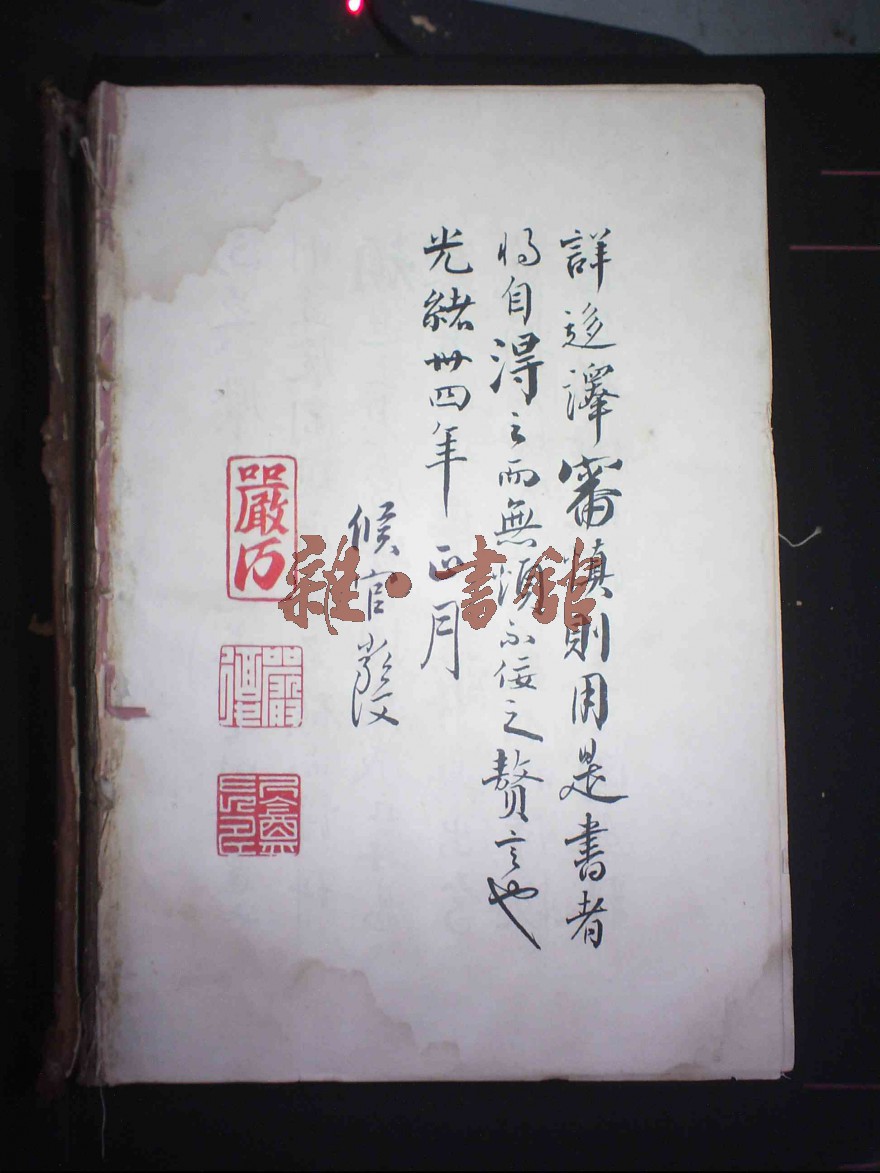 詳迻譯審慎則用是書者
將自得之而無須不佞之贅言也
光緒卅四年 正月
候官嚴復
嚴
嚴復
雜·書館